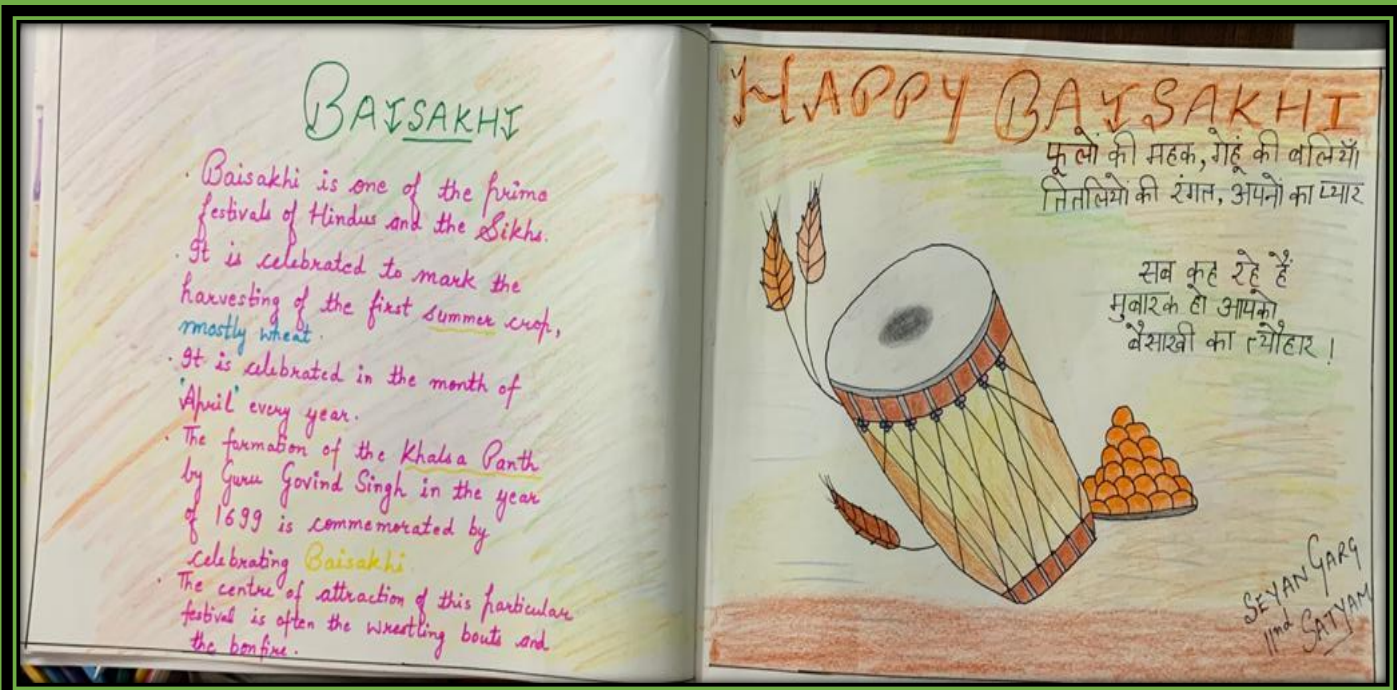 BAISAKHI
. Baisakhi is one of the prime
festivals of Hindus and the Sikhs.
. It is celebrated to mark the
harvesting of the first summer crop,
mostly wheat.
. It is celebrated in the month of
'April' every year.
. The formation of the Khalsa Panth
by Guru Govind Singh in the year
of 1699 is commemorated by
celebrating Baisakhi.
. The centre of attraction of this particular
festival is often the wrestling bouts and
the bonfire.
HAPPY BAISAKHI
फूलों की महक, गेहूं की बालियाँ
तितलियों की रंगत, अपनों का प्यार
सब कह रहे हैं
मुबारक हो आपको
बैसाखी का त्यौहार !
SEYAN GARG
IInd SATYAM